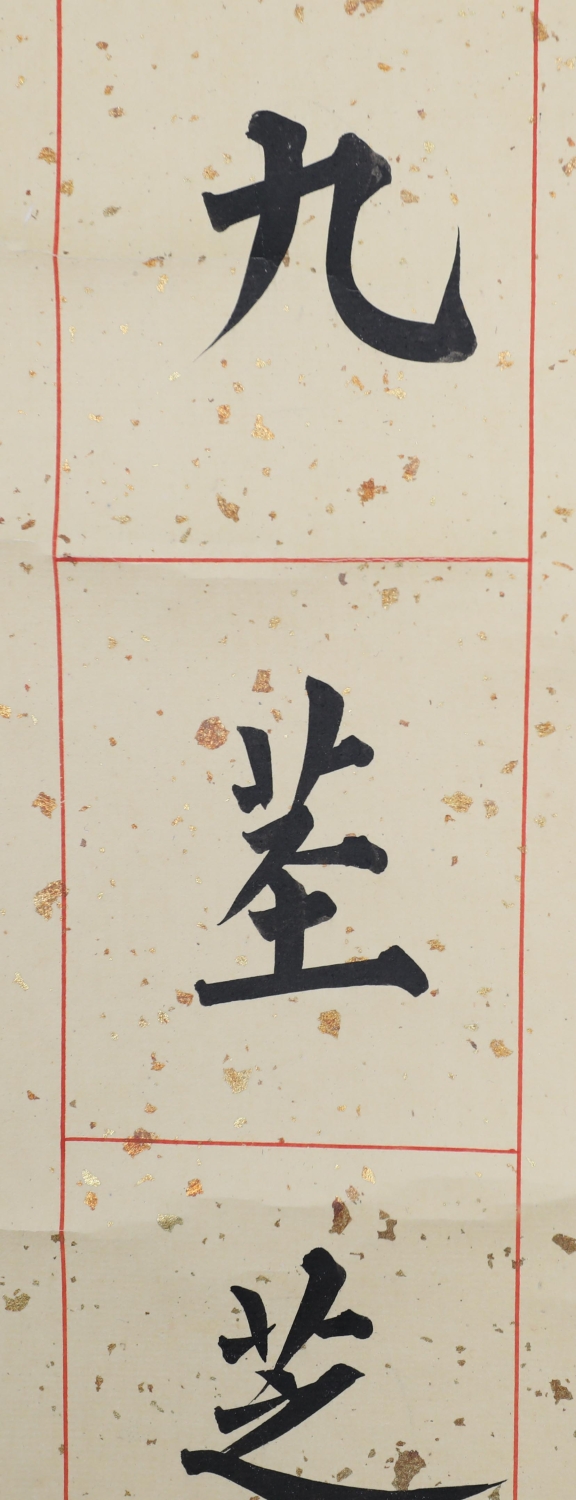 九茎芝